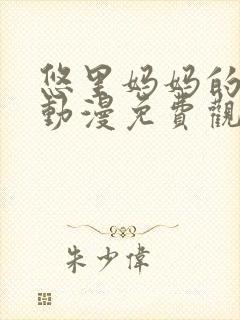 悠里妈妈的
動漫免費觀
朱少偉